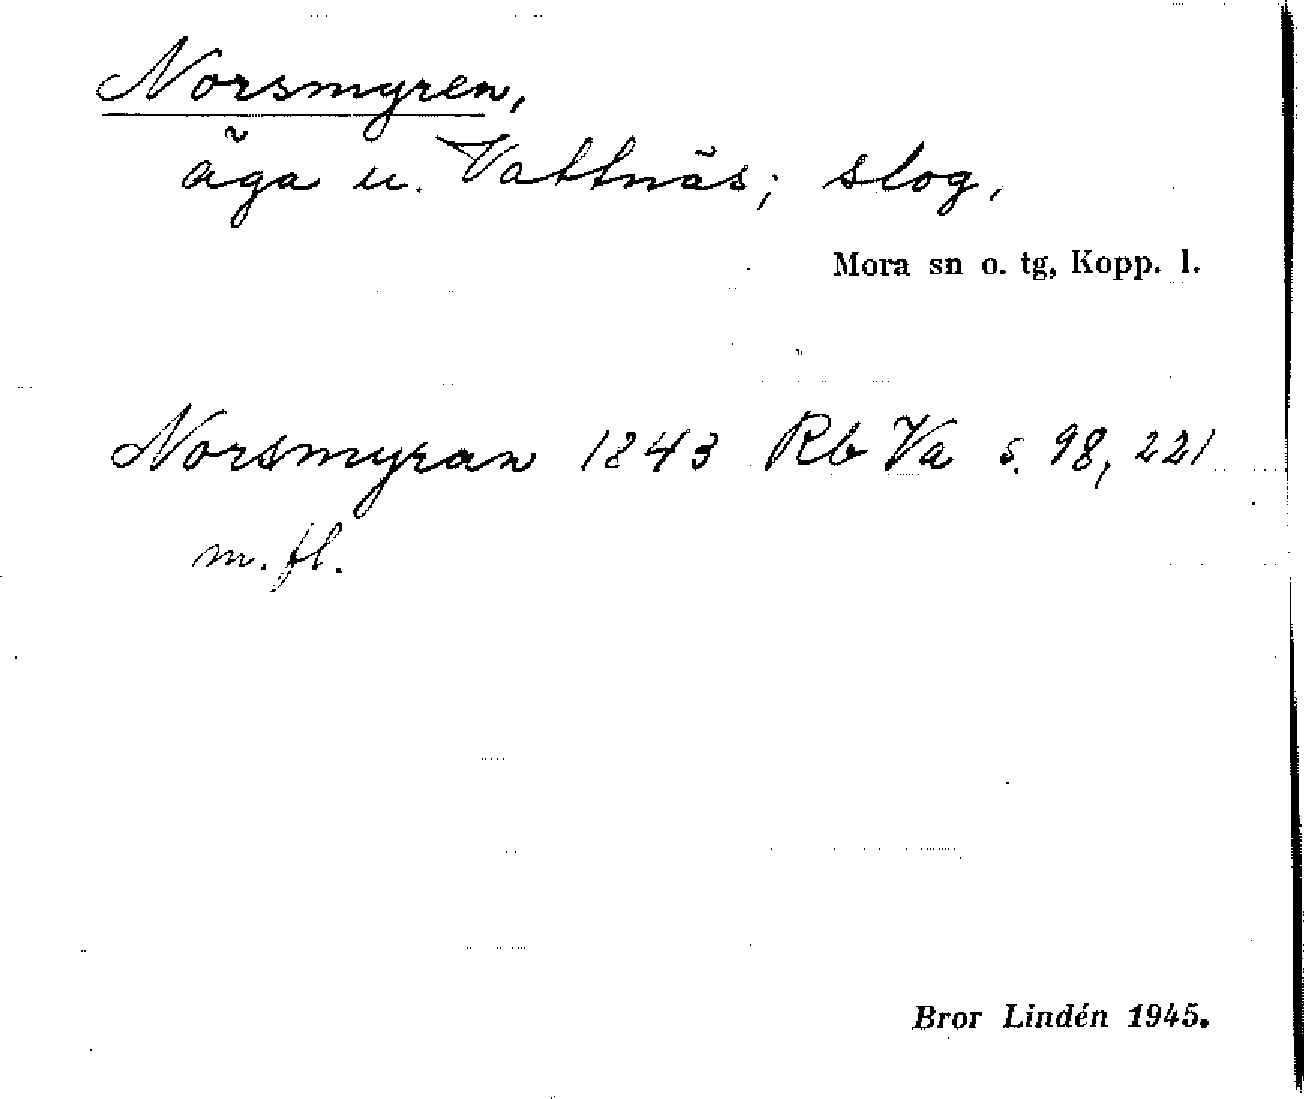 Norsmyren,
äga u. Vattnäs; slog,
Mora sn o. tg, Kopp. l.
Norsmyran 1843 Rb Va s. 98, 221
m. fl.
Bror Lindén 1945.